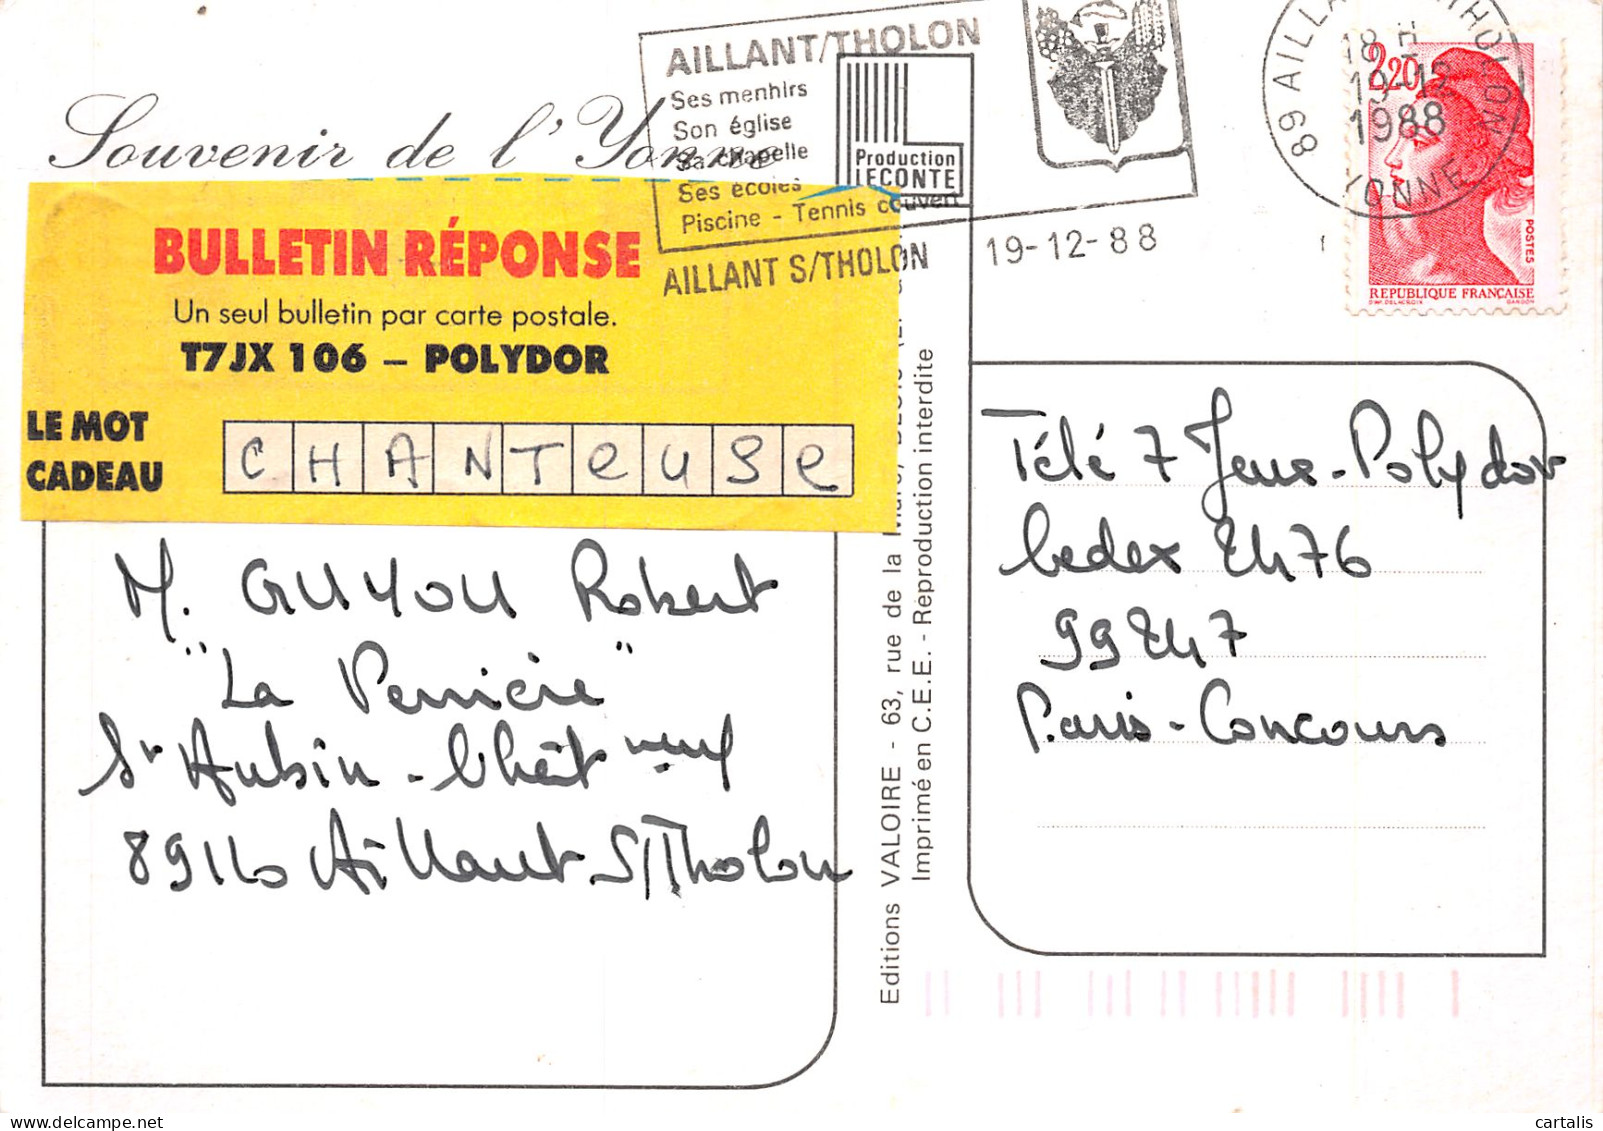 AILLANT/THOLON
Ses menhirs
Son église
Sa chapelle
Ses écoles
Piscine - Tennis couvert
AILLANT S/THOLON
Production
LECONTE
19-12-88
18 H
19-12
1988
YONNE
2,20
POSTES
REPUBLIQUE FRANÇAISE
Souvenir de l'Yonne
BULLETIN RÉPONSE
Un seul bulletin par carte postale.
T7JX 106 – POLYDOR
LE MOT
CADEAU
CHANTEUSE
M. GUYOU Robert
"La Perrière"
St Aubin-Chât neuf
89110 Aillant S/Tholon
Editions VALOIRE - 63, rue de la
Imprimé en C.E.E. - Reproduction interdite
Télé 7 Jeux-Polydor
Cedex 2476
99247
Paris-Concours
cartalis
delcampe.net